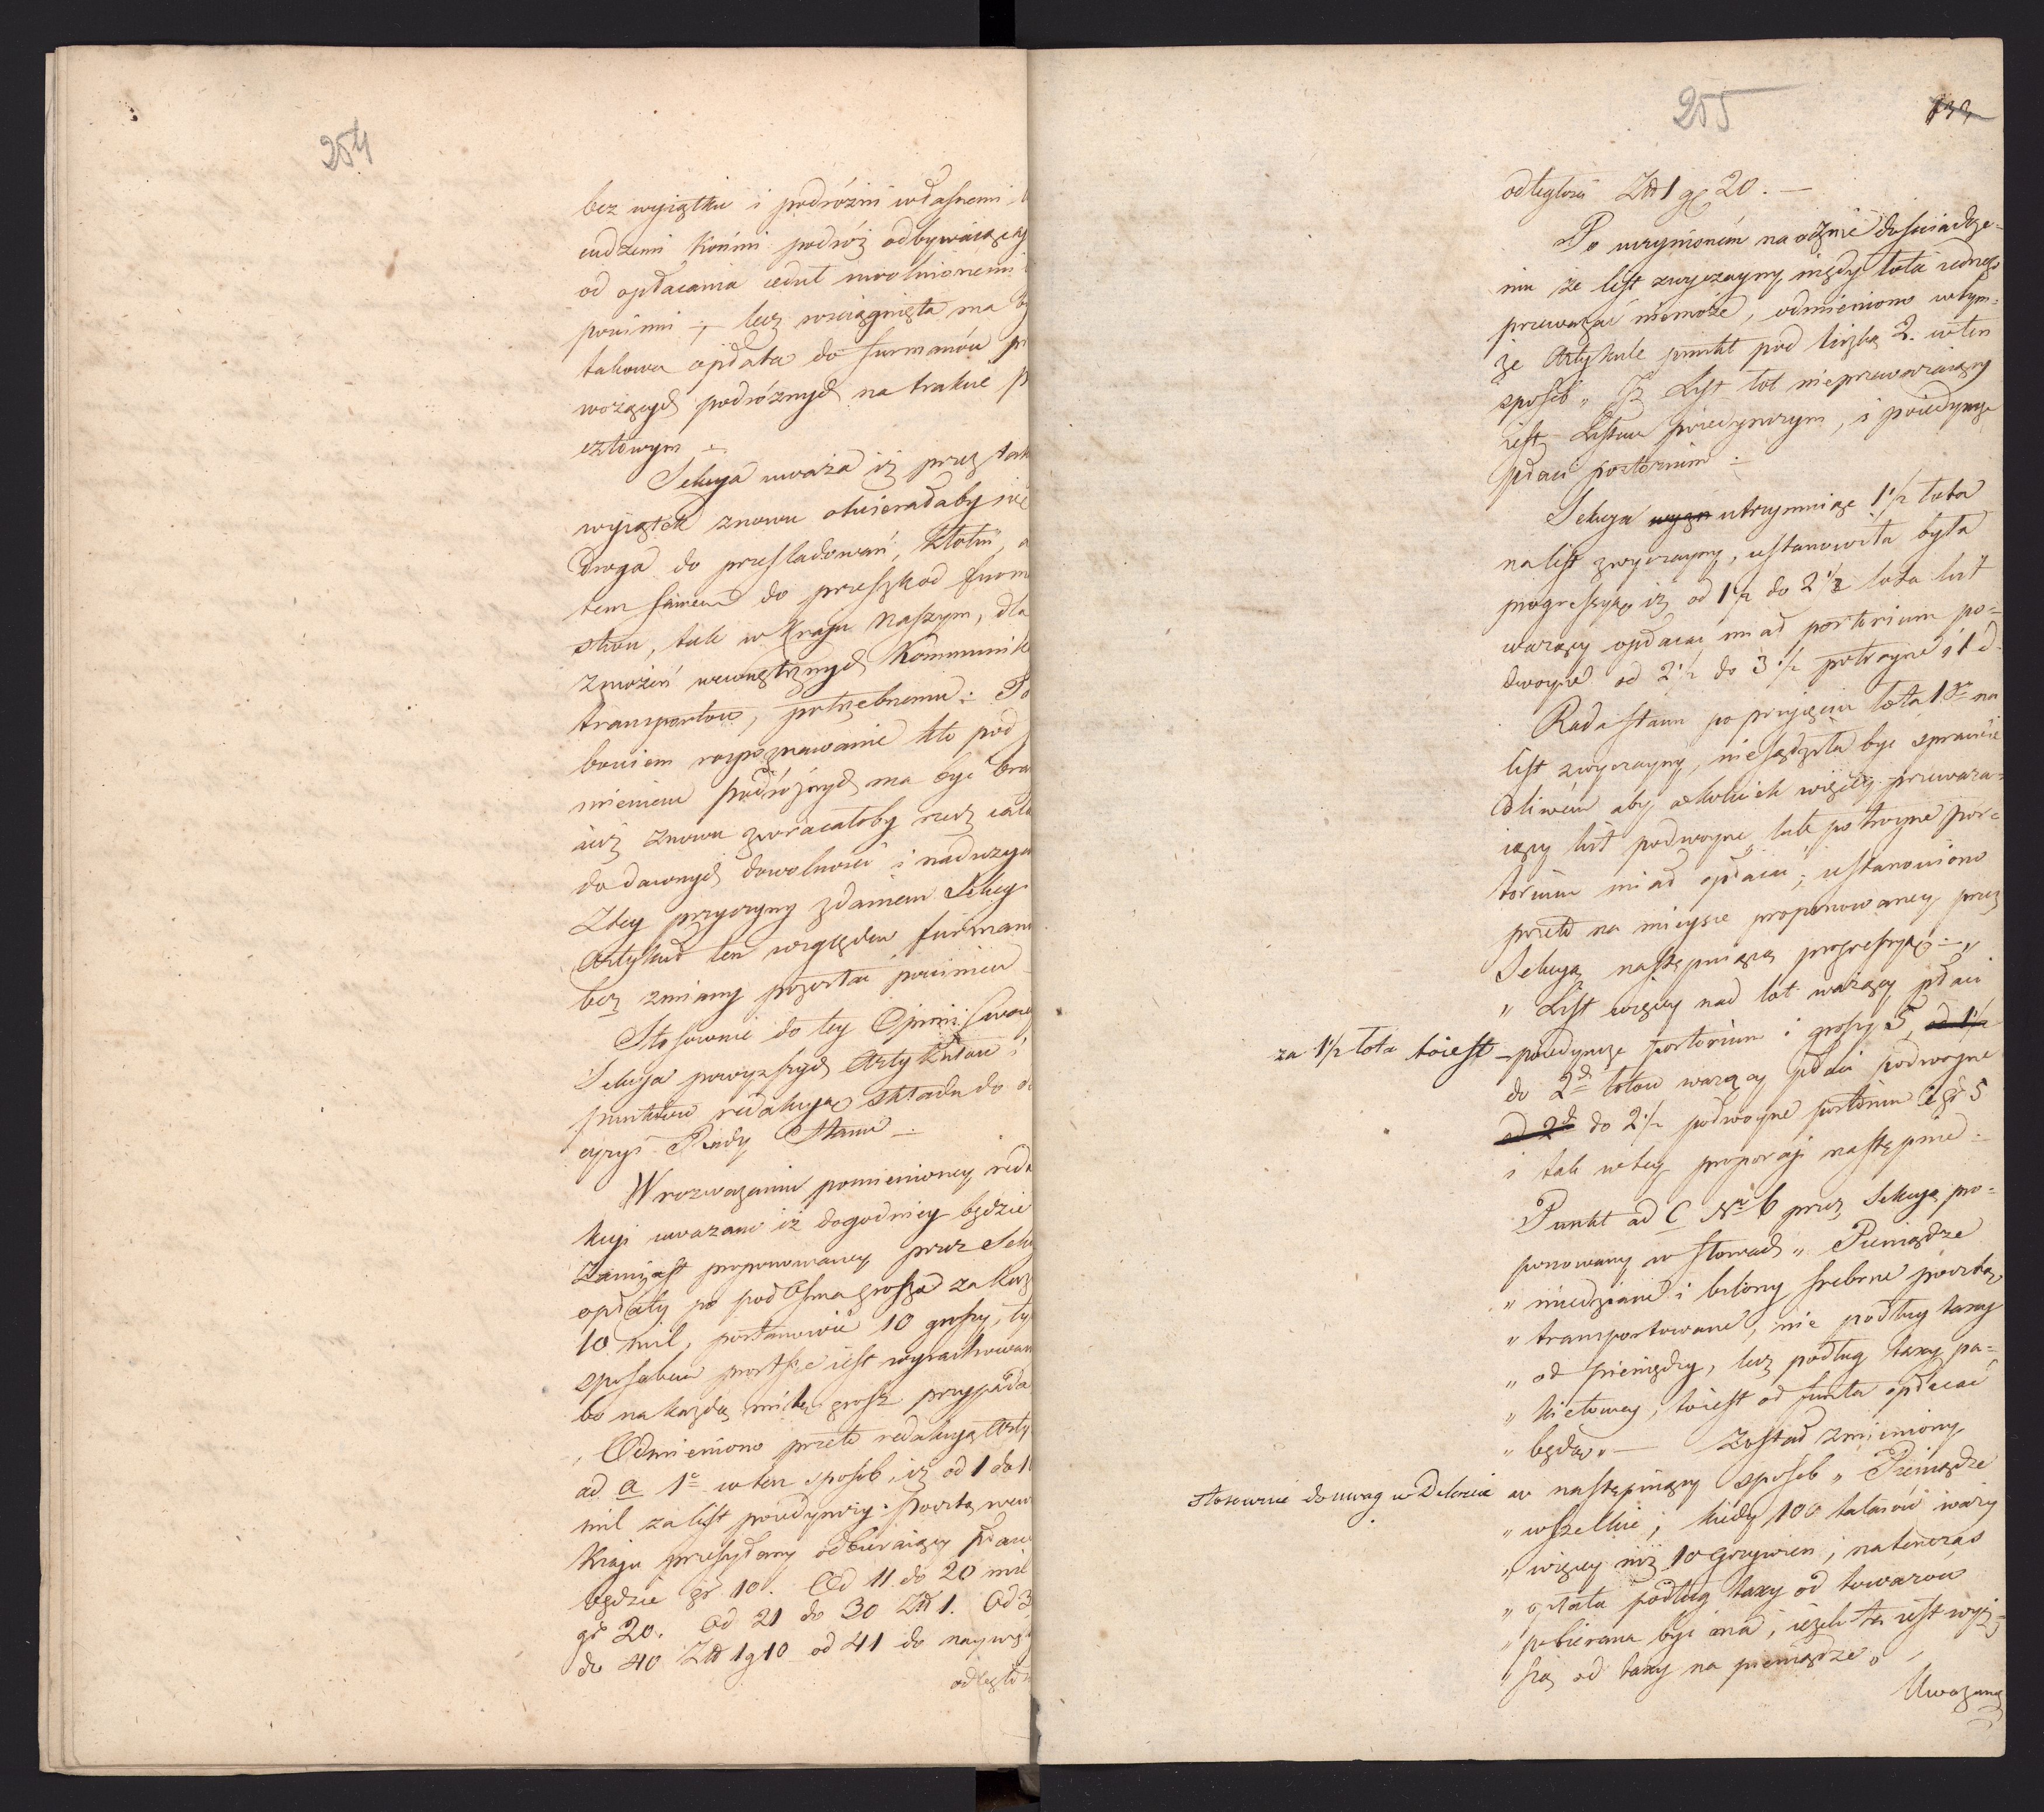 254
bez wyiątku i podróżni własnemi
cudzemi końmi podróż odbywaiący
od opłacania cedut uwolnionemi
powinni ÷ lecz rosciągnięta ma b
takowa opłata do furmanów p
wożących podróżnych na trakcie p
cztowym ÷
Sekcya uważa iż przez tak
wyiątek znowu otwierałaby się
droga do prześladowań, kłotni, a
tem samem do przeszkod furm
stwu, tak w kraju naszym, dla
zmożeń wewnętrznych Kommunik
transportow, potrzebnemu: Po
bowiem rozpoznawanie kto pod
mieniem podróżnych ma być bra
iuż znowu zwracałoby rzecz cała
do dawnych dowolności i nadużyć
Z tey przyczyny zdaniem Sekcyi
Artykuł ten względem furmanó
bez zmiany pozostać powinien
Stosownie do tey Opinii swoiey
Sekcya powyższych Artykułow i
punktow redakcyą składa do d
cyzyi Rady Stanu ÷
W rozważaniu pomienioney reda
kcyi uważano iż dogodniey będzie
zamiast proponowaney przez Sekc
opłaty po pod Osma groszach za każ
10 mil, postanowić 10 groszy, ty
sposobem prostsze iest wyrachowan
bo na każdą milę grosz przypada
Odmieniono przeto redakcyą Arty
ad a 1° w ten sposob, iż od 1 do 1
mil za list poiedynczy pocztą wew
Kraju przesyłany odbieraiący płacić
będzie gr 10. Od 11 do 20 mil
gr 20. Od 21 do 30 Złł 1. Od 3
do 40 Złł 1 g 10 od 41 do naywię
odległo
255
odległosci Złł 1 gr 20. —
Po uczynionem naocznie doświadcze-
niu że list zwyczayny między łota iednego
przeważać niemoże, odmieniono w tym-
że Artykule punkt pod liczbą 2. w ten
sposob „ Iż List łot nieprzeważaiący
iest Listem poiedynczym, i poiedyncze
płaci portorium ÷
Sekcya utrzymuiąc 1 1/2 łuta
na list zwyczayny, ustanowiła była
progressyą iż od 1 1/2 do 2 1/2 łota list
ważący opłacać miał portorium po-
dwoyne od 2 1/2 do 3 1/2 potroyne i t d.
Rada Stanu po przyięciu łota 1go na
list zwyczayny, niesądziła być sprawie
dliwem aby cokolwiek więcey przeważa-
iący list podwoyne, lub potroyne por-
torium miał opłacać; ustanowiono
przeto na mieysce proponowaney przez
Sekcyą następuiącą progressyą: — „
„ List więcey nad łot ważący płaci
za 1 1/2 łota toiest – poiedyncze portorium i groszy 5, od 1 1/2
do 2ch łotow ważący płaci podwoyne
od 2ch do 2 1/2 podwoyne portorium i gr 5
i tak w tey proporcyi następnie ÷
Punkt ad C Nr 6 przez Sekcyą pro-
ponowany w słowach „ Pieniądze
„ miedziane i bilony srebrne pocztą
„ transportowane, nie podług taxy
„ od pieniędzy, lecz podług taxy pa-
„ kietowey, toiest od funta opłacać
„ będą „ — został zmieniony
stosownie do uwag w Dekrecie w następuiący sposob „ Pieniądze
„ wszelkie, kiedy 100 talarów waży
„ więcey niż 10 Grzywien, natenczas
„ opłata podług taxy od towarow
„ pobierana być ma, ieżeli ta iest wyż-
„ szą od taxy na pieniądze „
Uważano